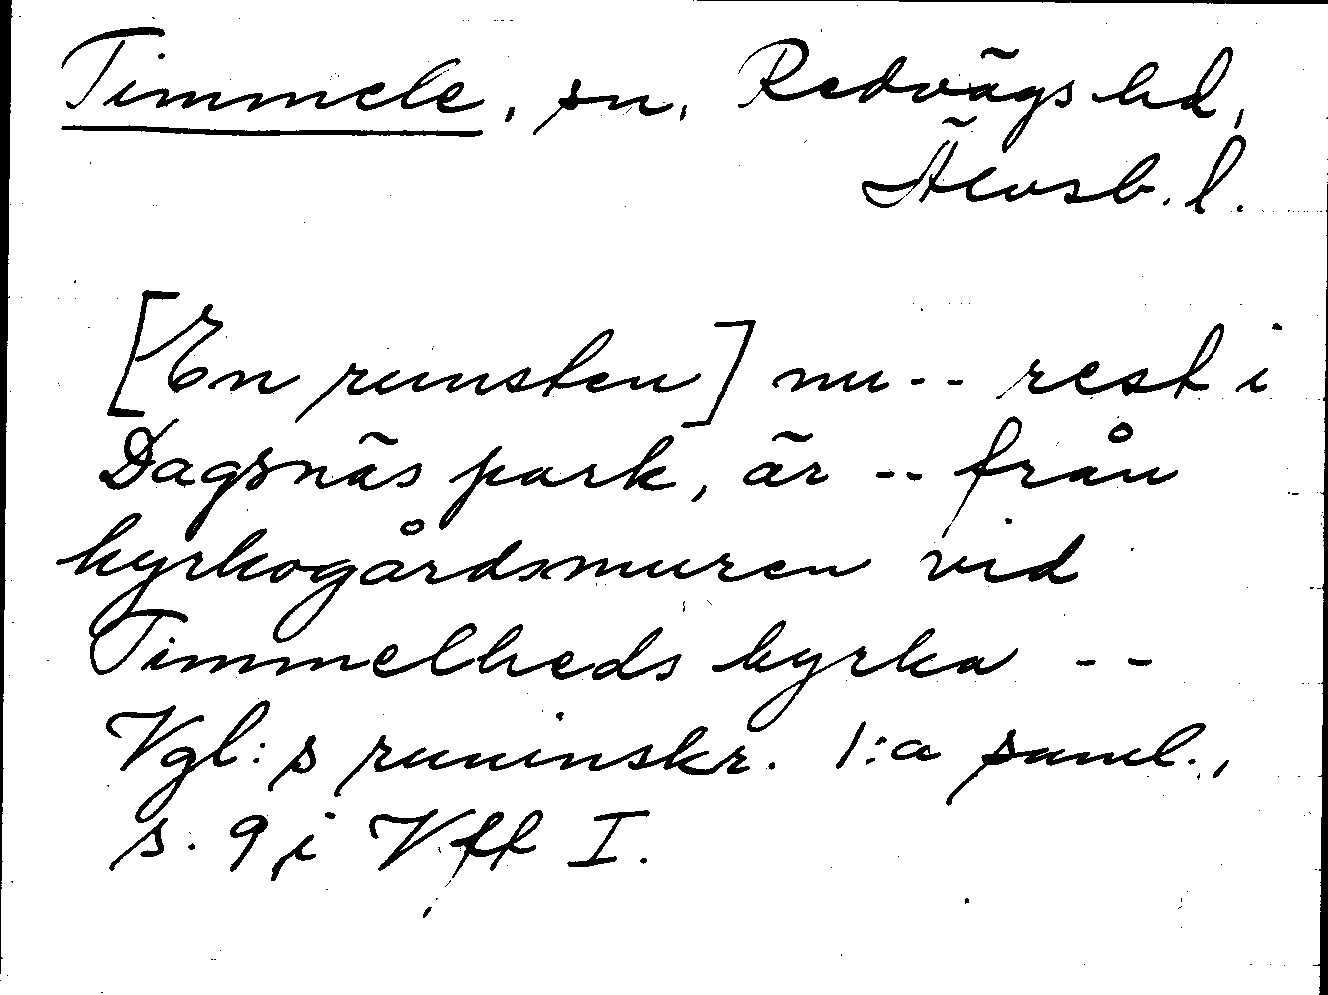 Timmele, sn, Redvägs hd,
Älvsb. l.
[En runsten] nu -- rest i
Dagsnäs park, är -- från
kyrkogårdsmuren vid
Timmelheds kyrka --
Vgl:s runinskr. 1:a saml.,
s. 9, i Vff I.